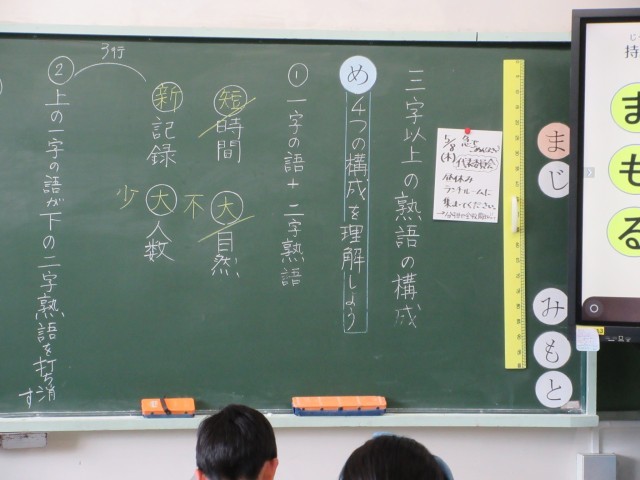 三字以上の熟語の構成
め 4つの構成を理解しよう
① 一字の語+二字熟語
短時間
大自然
不
新記録
大人数
少
3行
② 上の一字の語が下の二字熟語を打ち消す
5/8
(木)
代表委員会
昼休み
ランチルームに
集まってください。
まじ
みもと
じ
持
ま
も
る